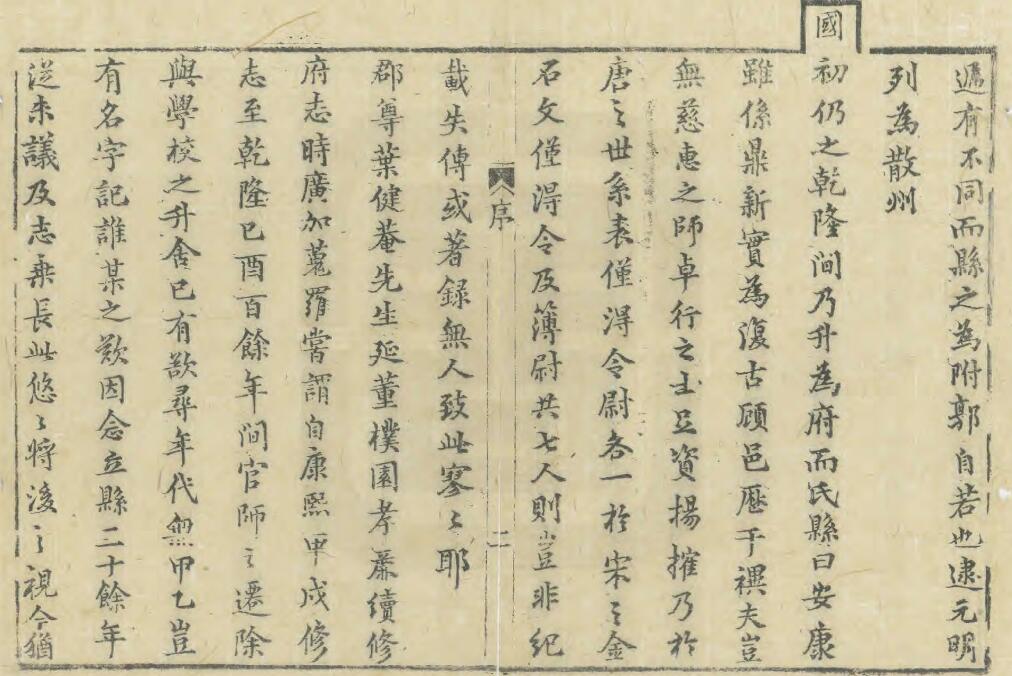 遞有不同而縣之為附郭自若也逮元明
列為散州
國
初仍之乾隆間乃升為府而氏縣曰安康
雖係鼎新實為復古顧邑歷千禩夫豈
無慈惠之師卓行之士足資揚搉乃於
唐之世系表僅得令尉各一於宋之金
石文僅得令及簿尉共七人則豈非紀
序
二
載失傳或著録無人致此寥〻耶
郡尊葉健菴先生延董樸園孝廉續修
府志時廣加蒐羅嘗謂自康熙甲戌修
志至乾隆已酉百餘年間官師之遷除
與學校之升舍已有欲尋年代無甲乙豈
有名字記誰某之歎因念立縣二十餘年
從未議及志乘長此悠〻將後之視今猶